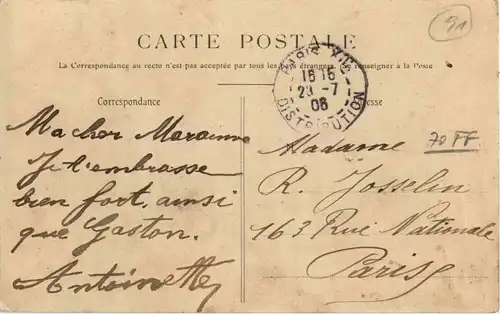 91
CARTE POSTALE
La Correspondance au recto n'est pas acceptée par tous les pays étrangers. Se renseigner à la Poste
PARIS XIII
16 15
29 -7
06
DISTRIBUTION
Correspondance
Ma cher Marainne
Je t'embrasse
bien fort, ainsi
que Gaston.
Antoinette
Adresse
70 FF
Madame
R. Josselin
163 Rue Nationale
Paris